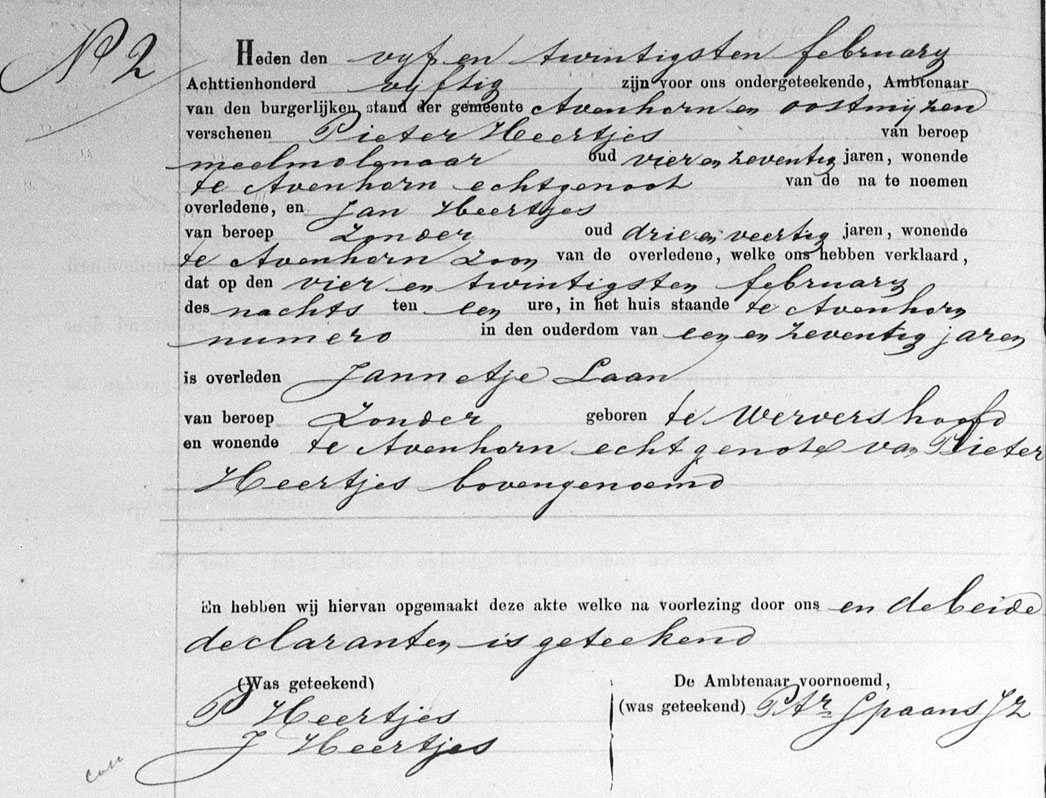 No 2
Heden den vyf en twintigsten february
Achttienhonderd vyftig zijn voor ons ondergeteekende, Ambtenaar
van den burgerlijken stand der gemeente Avenhorn en oostmyzen
verschenen Pieter Heertjes van beroep
meelmolenaar oud vier en zeventig jaren, wonende
te Avenhorn echtgenoot van de na te noemen
overledene, en Jan Heertjes
van beroep Zonder oud drie en veertig jaren, wonende
te Avenhorn Zoon van de overledene, welke ons hebben verklaard,
dat op den vier en twintigsten february
des nachts ten een ure, in het huis staande te Avenhorn
numero in den ouderdom van een en zeventig jaren
is overleden Jannetje Laan
van beroep Zonder geboren te Wervershoofd
en wonende te Avenhorn echtgenote van Pieter
Heertjes bovengenoemd
En hebben wij hiervan opgemaakt deze akte welke na voorlezing door ons en de beide
declaranten is geteekend
(Was geteekend) De Ambtenaar voornoemd,
P Heertjes (was geteekend) Ptr Spaans Jz
J Heertjes